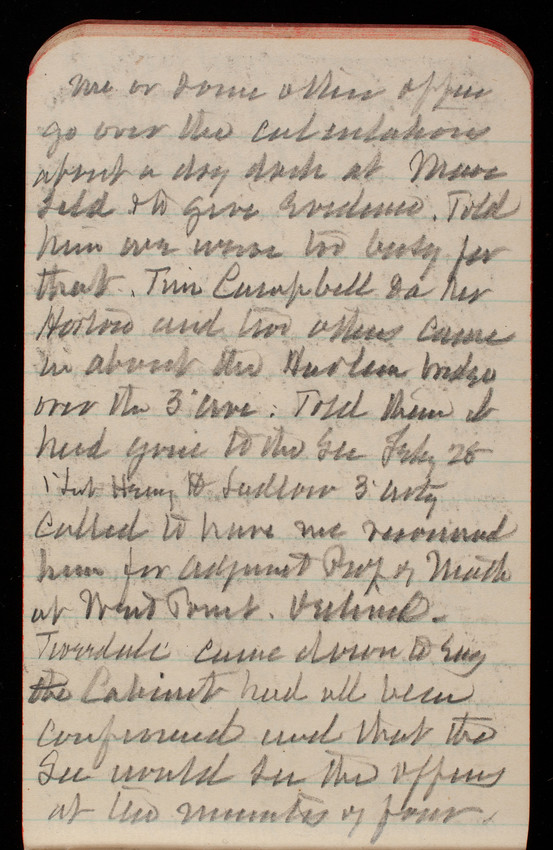 me or some other officer
go over the calculations
about a dry dock at Mare
Isld & to give evidence. Told
him we were too busy for
that. Tim Campbell
and two others came
in about the Harlem bridge
over the 3' ave. Told them it
had gone to the Sec Feby 28
1' Lut Henry H Ludlow 3' arty
called to have me recommend
him for adjunct Prof of Math
at West Point. Declined.
Tweedale came down to say
the Cabinet had all been
confirmed and that the
Sec would see the officers
at two minutes of four.